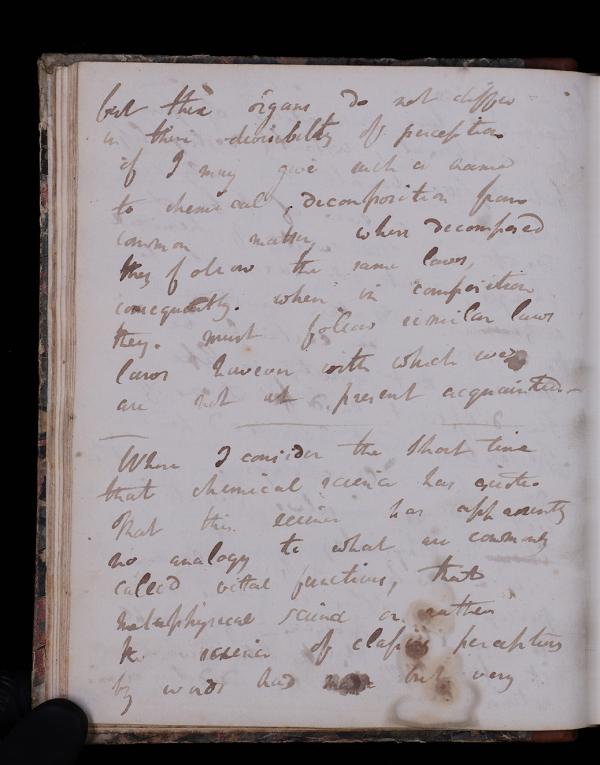 but their organs do not differ
in their divisibility of perception
if I may give such a name
to chemical decomposition from
common matter, when decomposed
they follow the same laws,
consequently. when in composition
they. must follow similar laws
laws however with which we
are not at present acquainted
When I consider the short time
that chemical science has existed
that this science has apparently
no analogy to what are commonly
called vital functions, that
metaphysical science or rather
the science of classing perceptions
by words had made but very